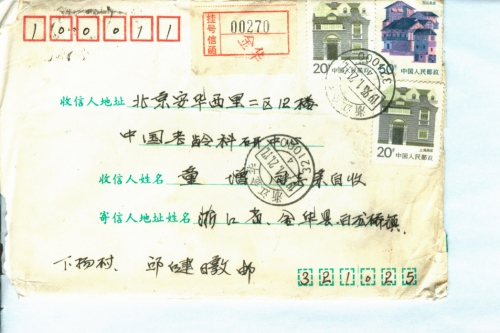 100011
挂号信函
00270
金华
20分
中国人民邮政
50分
中国人民邮政
20分
上海民居
中国人民邮政
收信人地址 北京安华西里二区12楼
中国老龄科研中心
收信人姓名 董 增 收
寄信人地址姓名 浙江省,金华县白龙桥镇,
下杨村. 邱 邮
321025